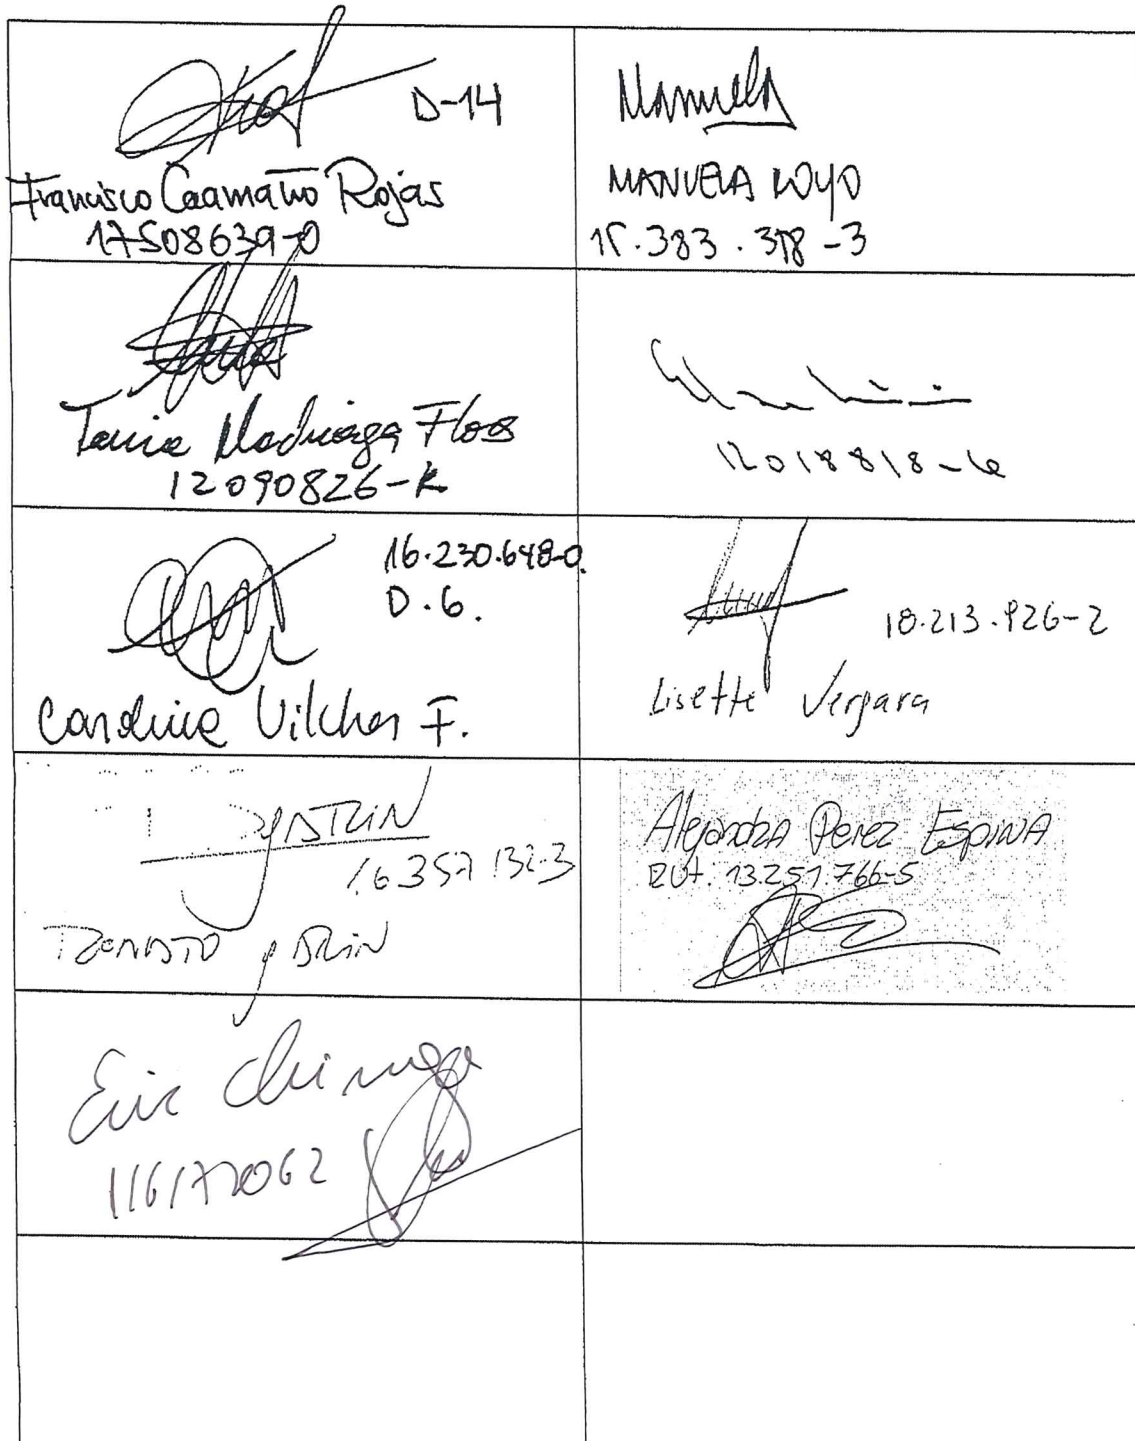 D-14
Francisco Caamaño Rojas
17508639-0
Manuela
MANUELA ROYO
15.383.358-3
Tania Madriaga Flores
12090826-k
12018818-6
16.230.648-0
D.6.
Carolina Vilches F.
18.213.926-2
Lisette Vergara
GARIN
16.357.132-3
RENATO GARIN
Alejandra Perez Espina
RUt. 13.251.766-5
Eric Chinga
116172062